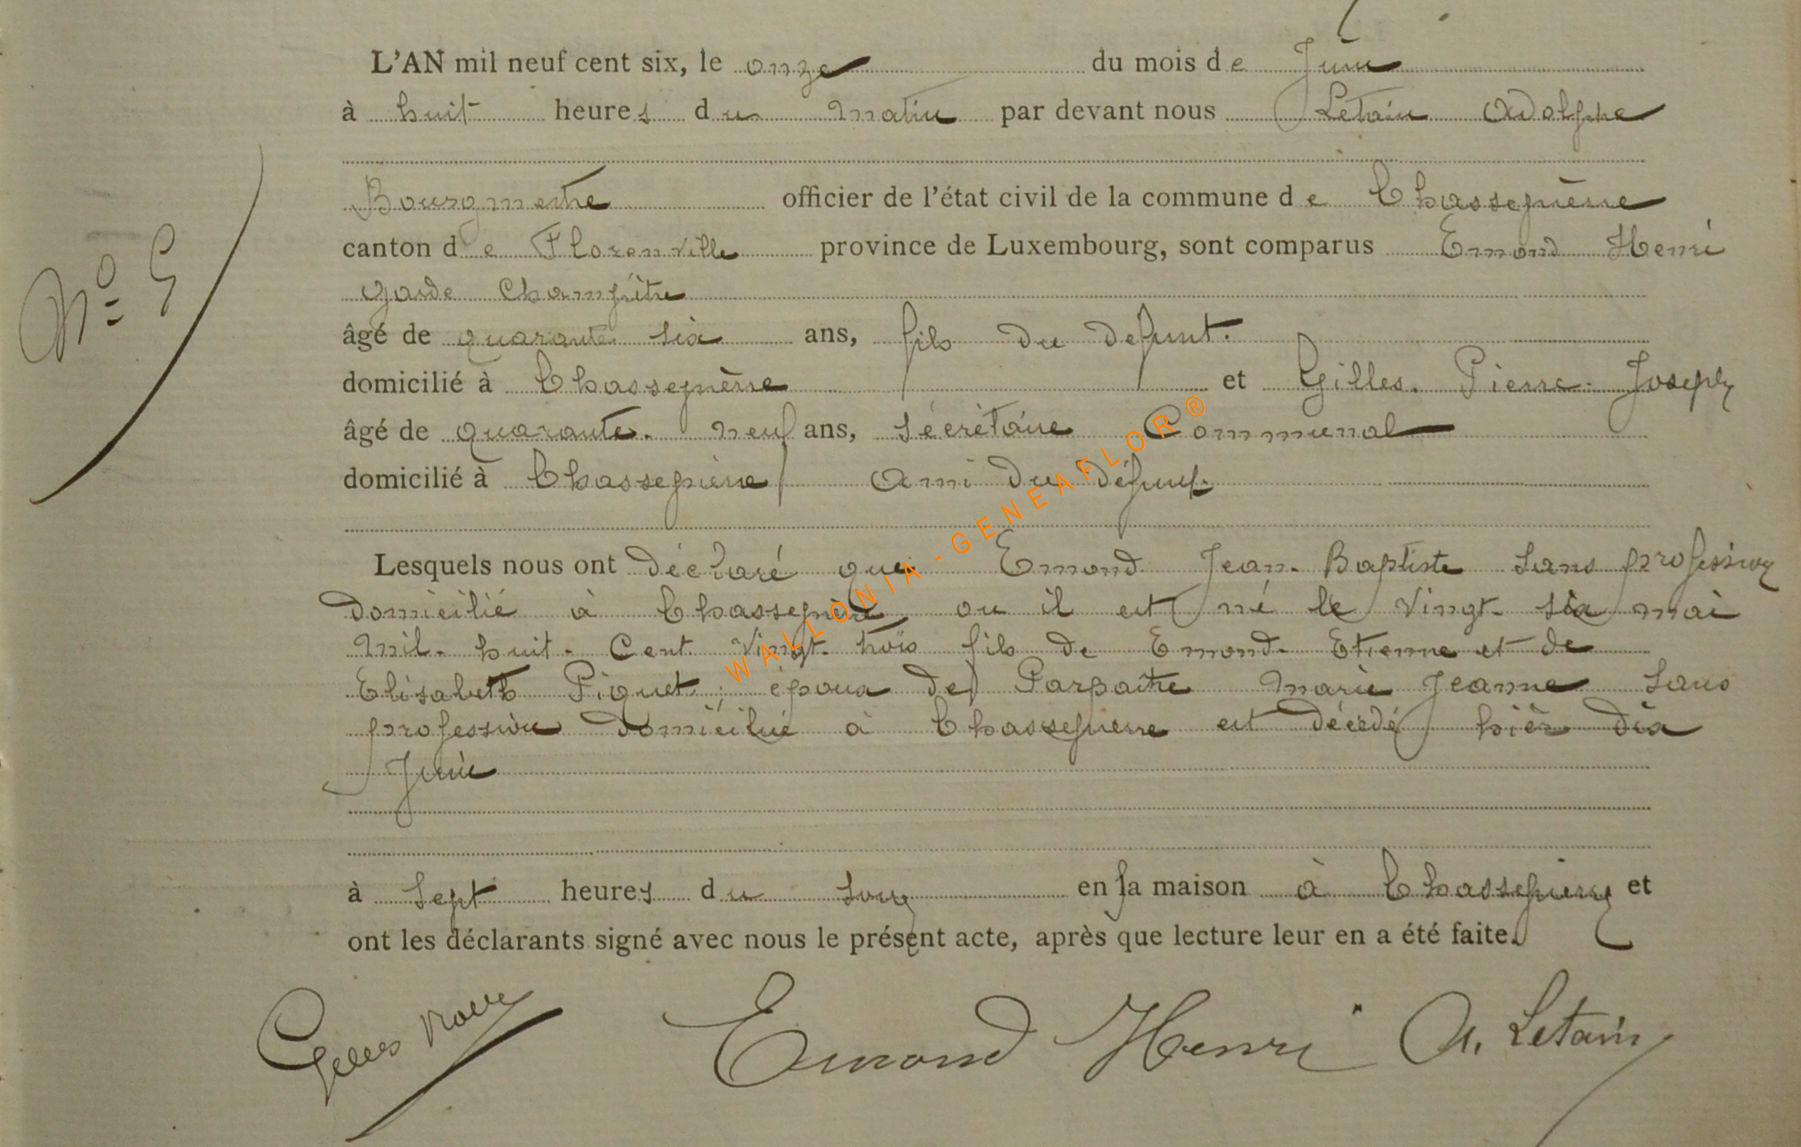 L'AN mil neuf cent six, le onze du mois de Juin
à huit heures du matin par devant nous Letain Adolphe
Bourgmestre officier de l'état civil de la commune de Chassepierre
canton de Florenville province de Luxembourg, sont comparus Emond Henri
Garde Champêtre
âgé de quarante six ans, fils du defunt.
domicilié à Chassepierre et Gilles. Pierre. Joseph
âgé de quarante. neuf ans, sécrétaire Communal
domicilié à Chassepierre ami du défunt.
Lesquels nous ont déclaré que Emond Jean. Baptiste sans profession
domicilié à Chassepierre, ou il est né le vingt. six mai
mil. huit. Cent vingt. trois fils de Emond. Etienne et de
Elisabeth Piquet, époux de Parpaitre Marie Jeanne sans
profession domiciliée à Chassepierre est décédé hièr dix
Juin
à sept heures du soir en sa maison à Chassepierre et
ont les déclarants signé avec nous le présent acte, après que lecture leur en a été faite.
Emond Henri A. Letain
N° 5
WALLONIA-GENEAFLOR®